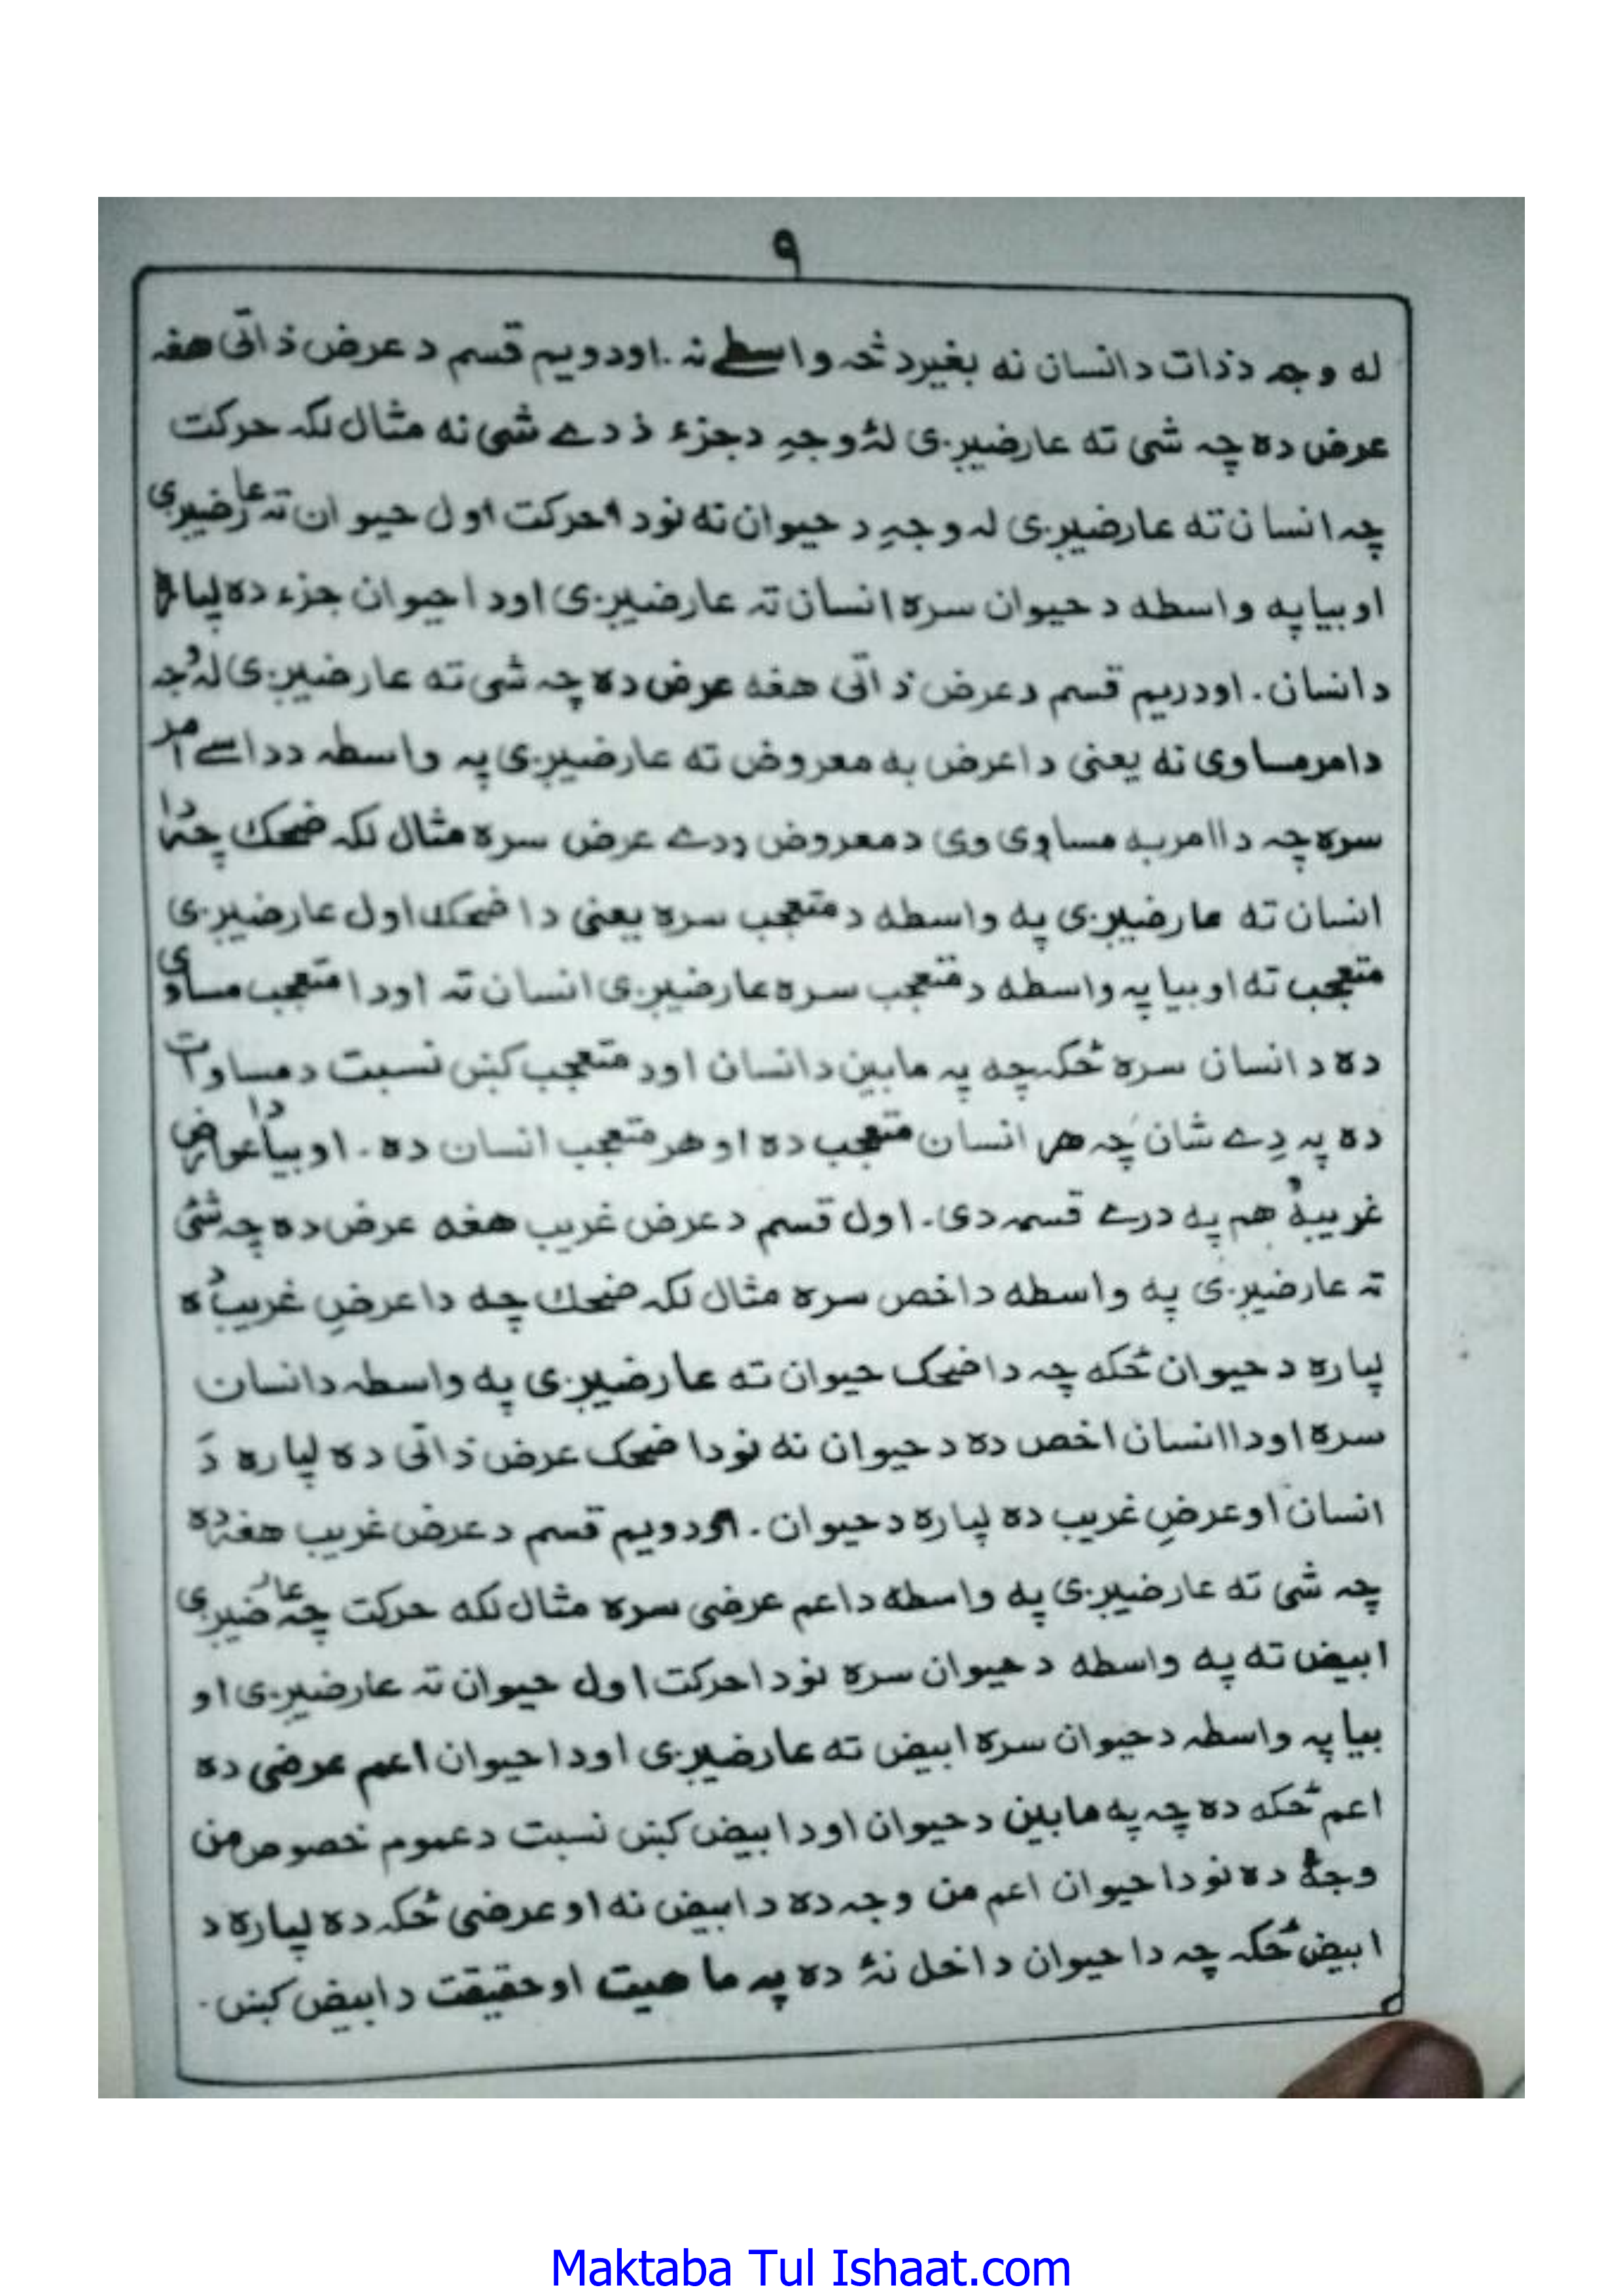 ۹
له وجہ د ذات د انسان نه بغیر د څہ واسطے نہ. او دویم قسم د عرض ذاتی هغہ
عرض ده چہ شی ته عارضیږی لۂ وجہِ د جزء د دے شی نه مثال لکہ حرکت
چہ انسان ته عارضیږی لہ وجہِ د حیوان نه نو دا حرکت اول حیوان تہ عارضیږی
او بیا په واسطه د حیوان سره انسان تہ عارضیږی او دا حیوان جزء ده لپاره
د انسان. او دریم قسم د عرض ذاتی هغه عرض ده چہ شی ته عارضیږی لہ وجہ
د امر مساوی نه یعنی دا عرض به معروض ته عارضیږی پہ واسطہ د داسے امر
سره چہ دا امر بہ مساوی وی د معروض د دے عرض سره مثال لکہ ضحک چہ دا
انسان ته عارضیږی په واسطه د متعجب سره یعنی دا ضحک اول عارضیږی
متعجب ته او بیا پہ واسطه د متعجب سره عارضیږی انسان تہ او دا متعجب مساوی
ده د انسان سره ځکہ چه پہ مابین د انسان او د متعجب کښ نسبت د مساوات
ده پہ دِے شان چہ هر انسان متعجب ده او هر متعجب انسان ده. او بیا دا عوارض
غریبۂ هم په درے قسمہ دی. اول قسم د عرض غریب هغه عرض ده چہ شئ
تہ عارضیږی په واسطه د اخص سره مثال لکہ ضحك چه دا عرضِ غریب ده
لپاره د حیوان ځکه چہ دا ضحک حیوان ته عارضیږی په واسطہ د انسان
سره او دا انسان اخص ده د حیوان نه نو دا ضحک عرض ذاتی ده لپاره دَ
انسان او عرضِ غریب ده لپاره د حیوان. او دویم قسم د عرض غریب هغہ ده
چہ شی ته عارضیږی په واسطه د اعم عرضی سره مثال لکه حرکت چہ عارضیږی
ابیض ته په واسطه د حیوان سره نو دا حرکت اول حیوان تہ عارضیږی او
بیا پہ واسطہ د حیوان سره ابیض ته عارضیږی او دا حیوان اعم عرضی ده
اعم ځکه ده چہ په مابین د حیوان او د ابیض کښ نسبت د عموم خصوص من
وجۂ ده نو دا حیوان اعم من وجہ ده د ابیض نه او عرضی ځکہ ده لپاره د
ابیض ځکہ چہ دا حیوان داخل نۂ ده پہ ماهیت او حقیقت د ابیض کښ.
Maktaba Tul Ishaat.com